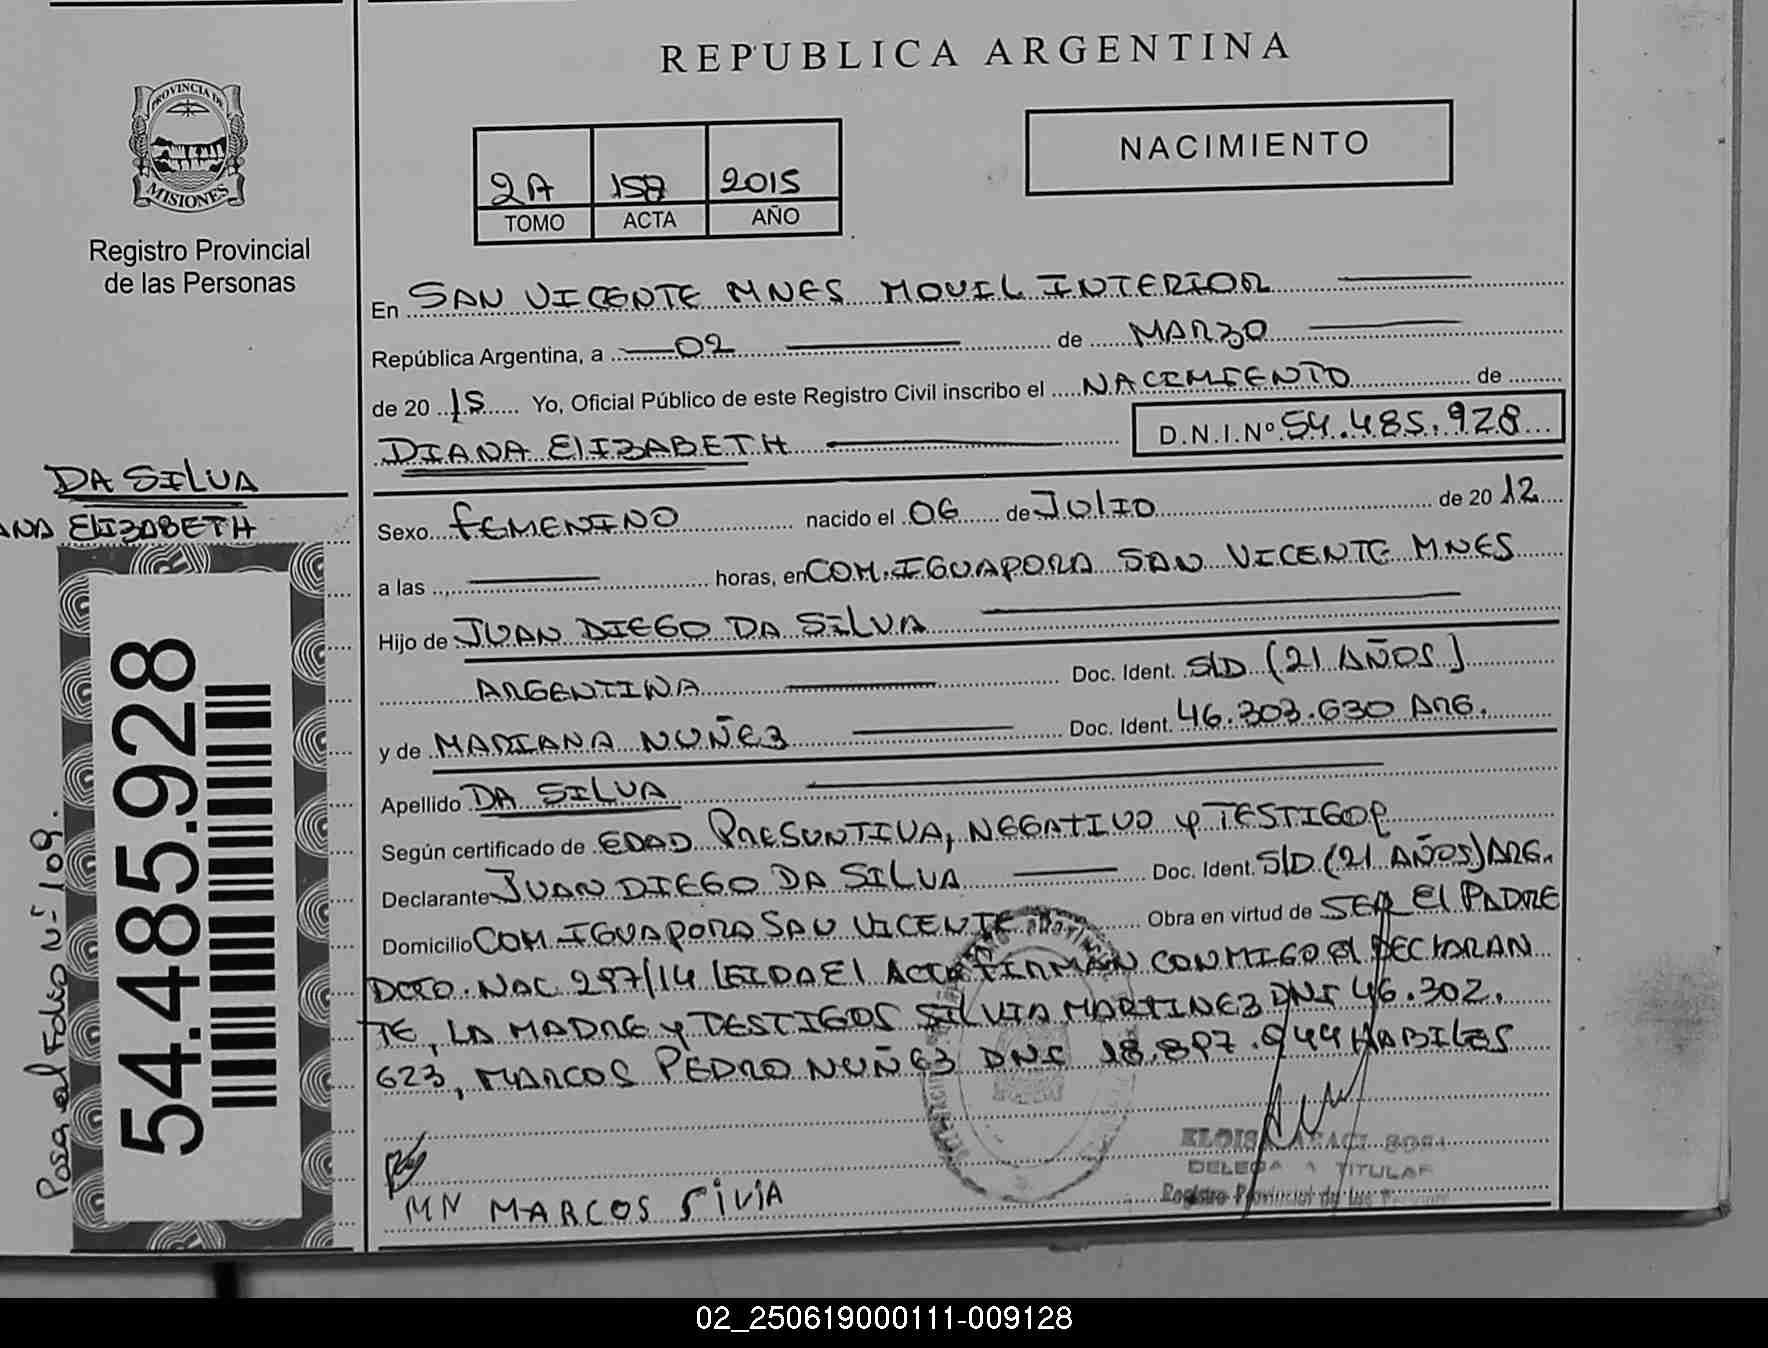 REPUBLICA ARGENTINA
PROVINCIA DE
MISIONES
Registro Provincial
de las Personas
NACIMIENTO
2A 2015
TOMO ACTA AÑO
En SAN VICENTE MNES MOVIL INTERIOR
República Argentina, a 02 de MARZO
de 20 15 Yo, Oficial Público de este Registro Civil inscribo el NACIMIENTO de
DIANA ELIZABETH D.N.I.Nº 54.485.928
DA SILVA
ELIZABETH
Sexo FEMENINO nacido el 06 de JULIO de 20 12
a las horas, en COM. IGUAPORA SAN VICENTE MNES
Hijo de JUAN DIEGO DA SILVA
ARGENTINA Doc. Ident. S/D (21 AÑOS)
y de MARIANA NUÑEZ Doc. Ident. 46.303.630 ARG.
Apellido DA SILVA
Según certificado de EDAD PRESUNTIVA, NEGATIVO y TESTIGOS
Declarante JUAN DIEGO DA SILVA Doc. Ident. S/D (21 AÑOS) ARG.
Domicilio COM. IGUAPORA SAN VICENTE Obra en virtud de SER El PADRE
DCTO. NAC 297/14 LEIDA El ACTA FIRMAN CONMIGO El DECLARAN
TE, LA MADRE y TESTIGOS SILVIA MARTINEZ DNI 46.302.
623, MARCOS PEDRO NUÑEZ DNI 18.897.944 HABILES
MN MARCOS SIVIA
DELEGADA TITULAR
Registro Provincial de las
54.485.928
Pasa al Folio Nº 109.
02_250619000111-009128